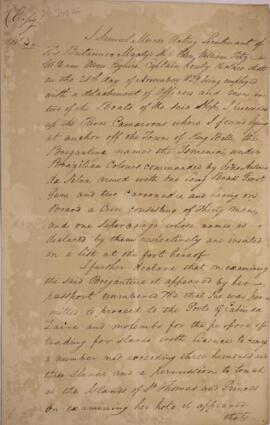 (Copy)
No 2.
I Samuel Acting Lieutenant of
His Britannic Majestys Ship Eden William Fitz
William Owen Esquire Captain hereby declare that
on the 28th day of November 1828 being employed
with a detachment of Officers and Men in
two of the Boats of the said Ship, I proceeded
up the River Camaroons where I found lying
at anchor off the Town of King Bell the
Brigantine named the under
Brazilian Colours commanded by
da Silva armed with one long
Gun and two Carronades and having on
Board a Crew consisting of Thirty Men
and one whose names as
declared by them respectively are inserted
in a list at the foot hereof
I further declare that on examining
the said Brigantine it appeared by her
passport numbered that She was per
mitted to proceed to the Ports of Cabinda
Zaire and Molembo for the purpose of
trading for slaves with licence to carry
a number not exceeding three hundred and
three Slaves and a permission to touch
at the Islands of St Thomas and Princes
On examining her hold it appeared
that